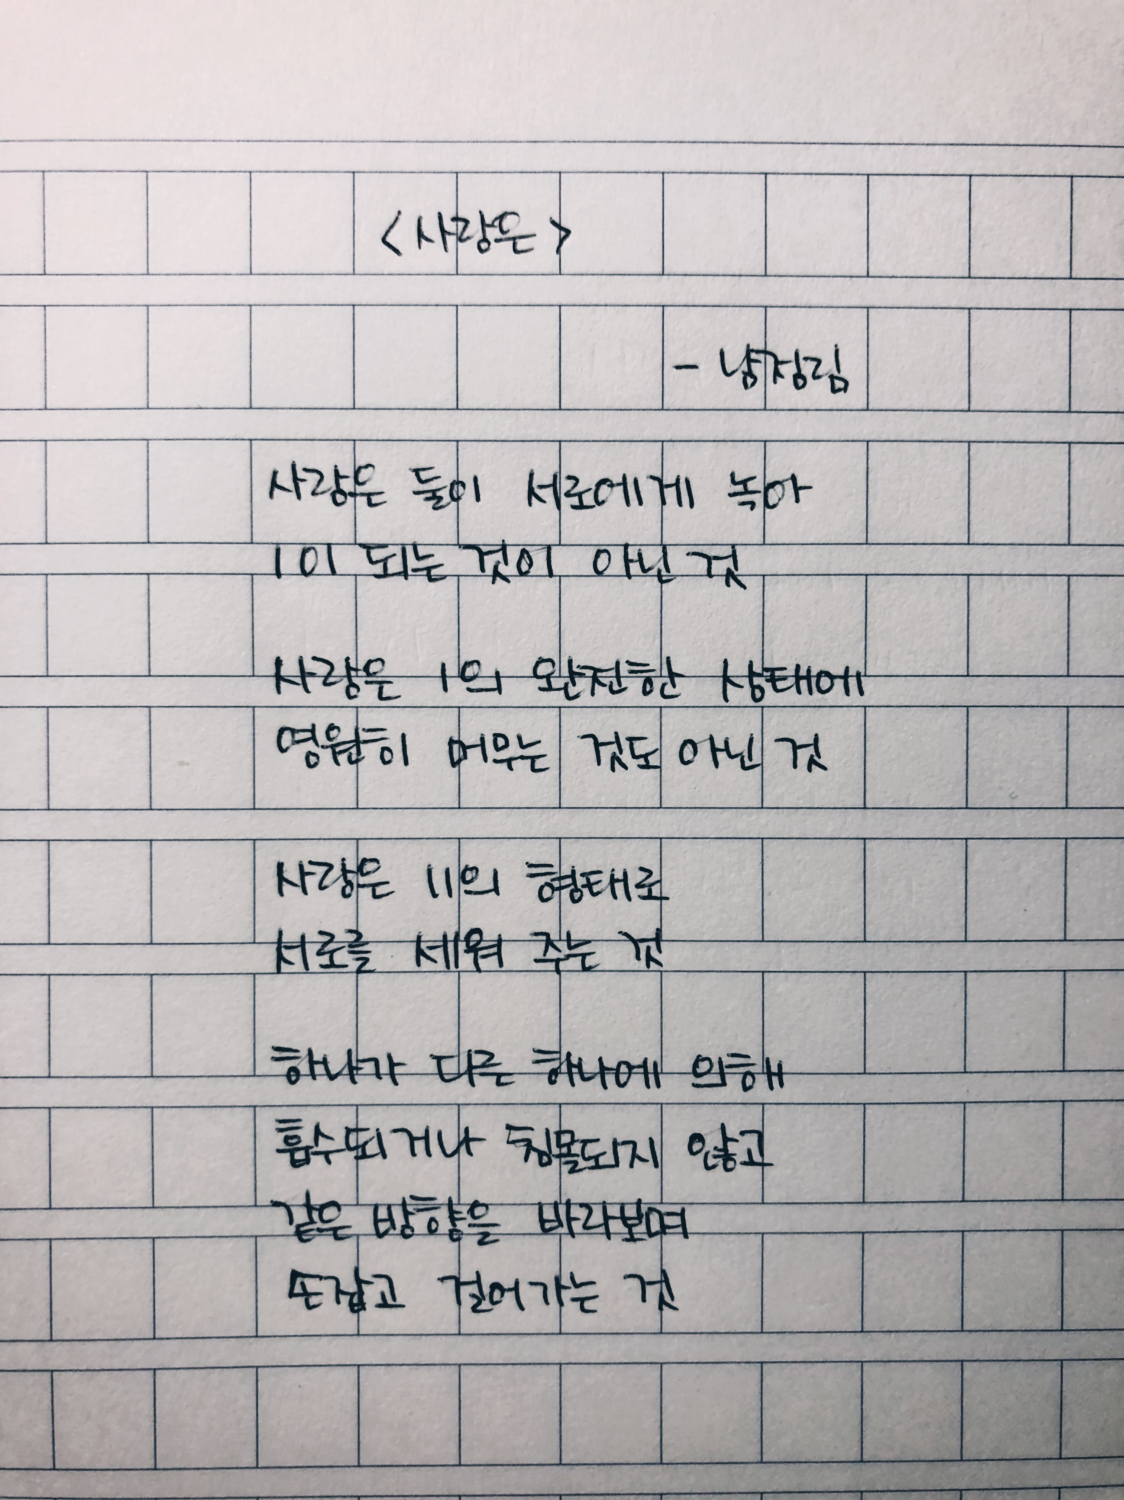 <사랑은>
- 냥정림
사랑은 둘이 서로에게 녹아
1이 되는 것이 아닌 것
사랑은 1의 완전한 상태에
영원히 머무는 것도 아닌 것
사랑은 11의 형태로
서로를 세워 주는 것
하나가 다른 하나에 의해
흡수되거나 침몰되지 않고
같은 방향을 바라보며
손잡고 걸어가는 것